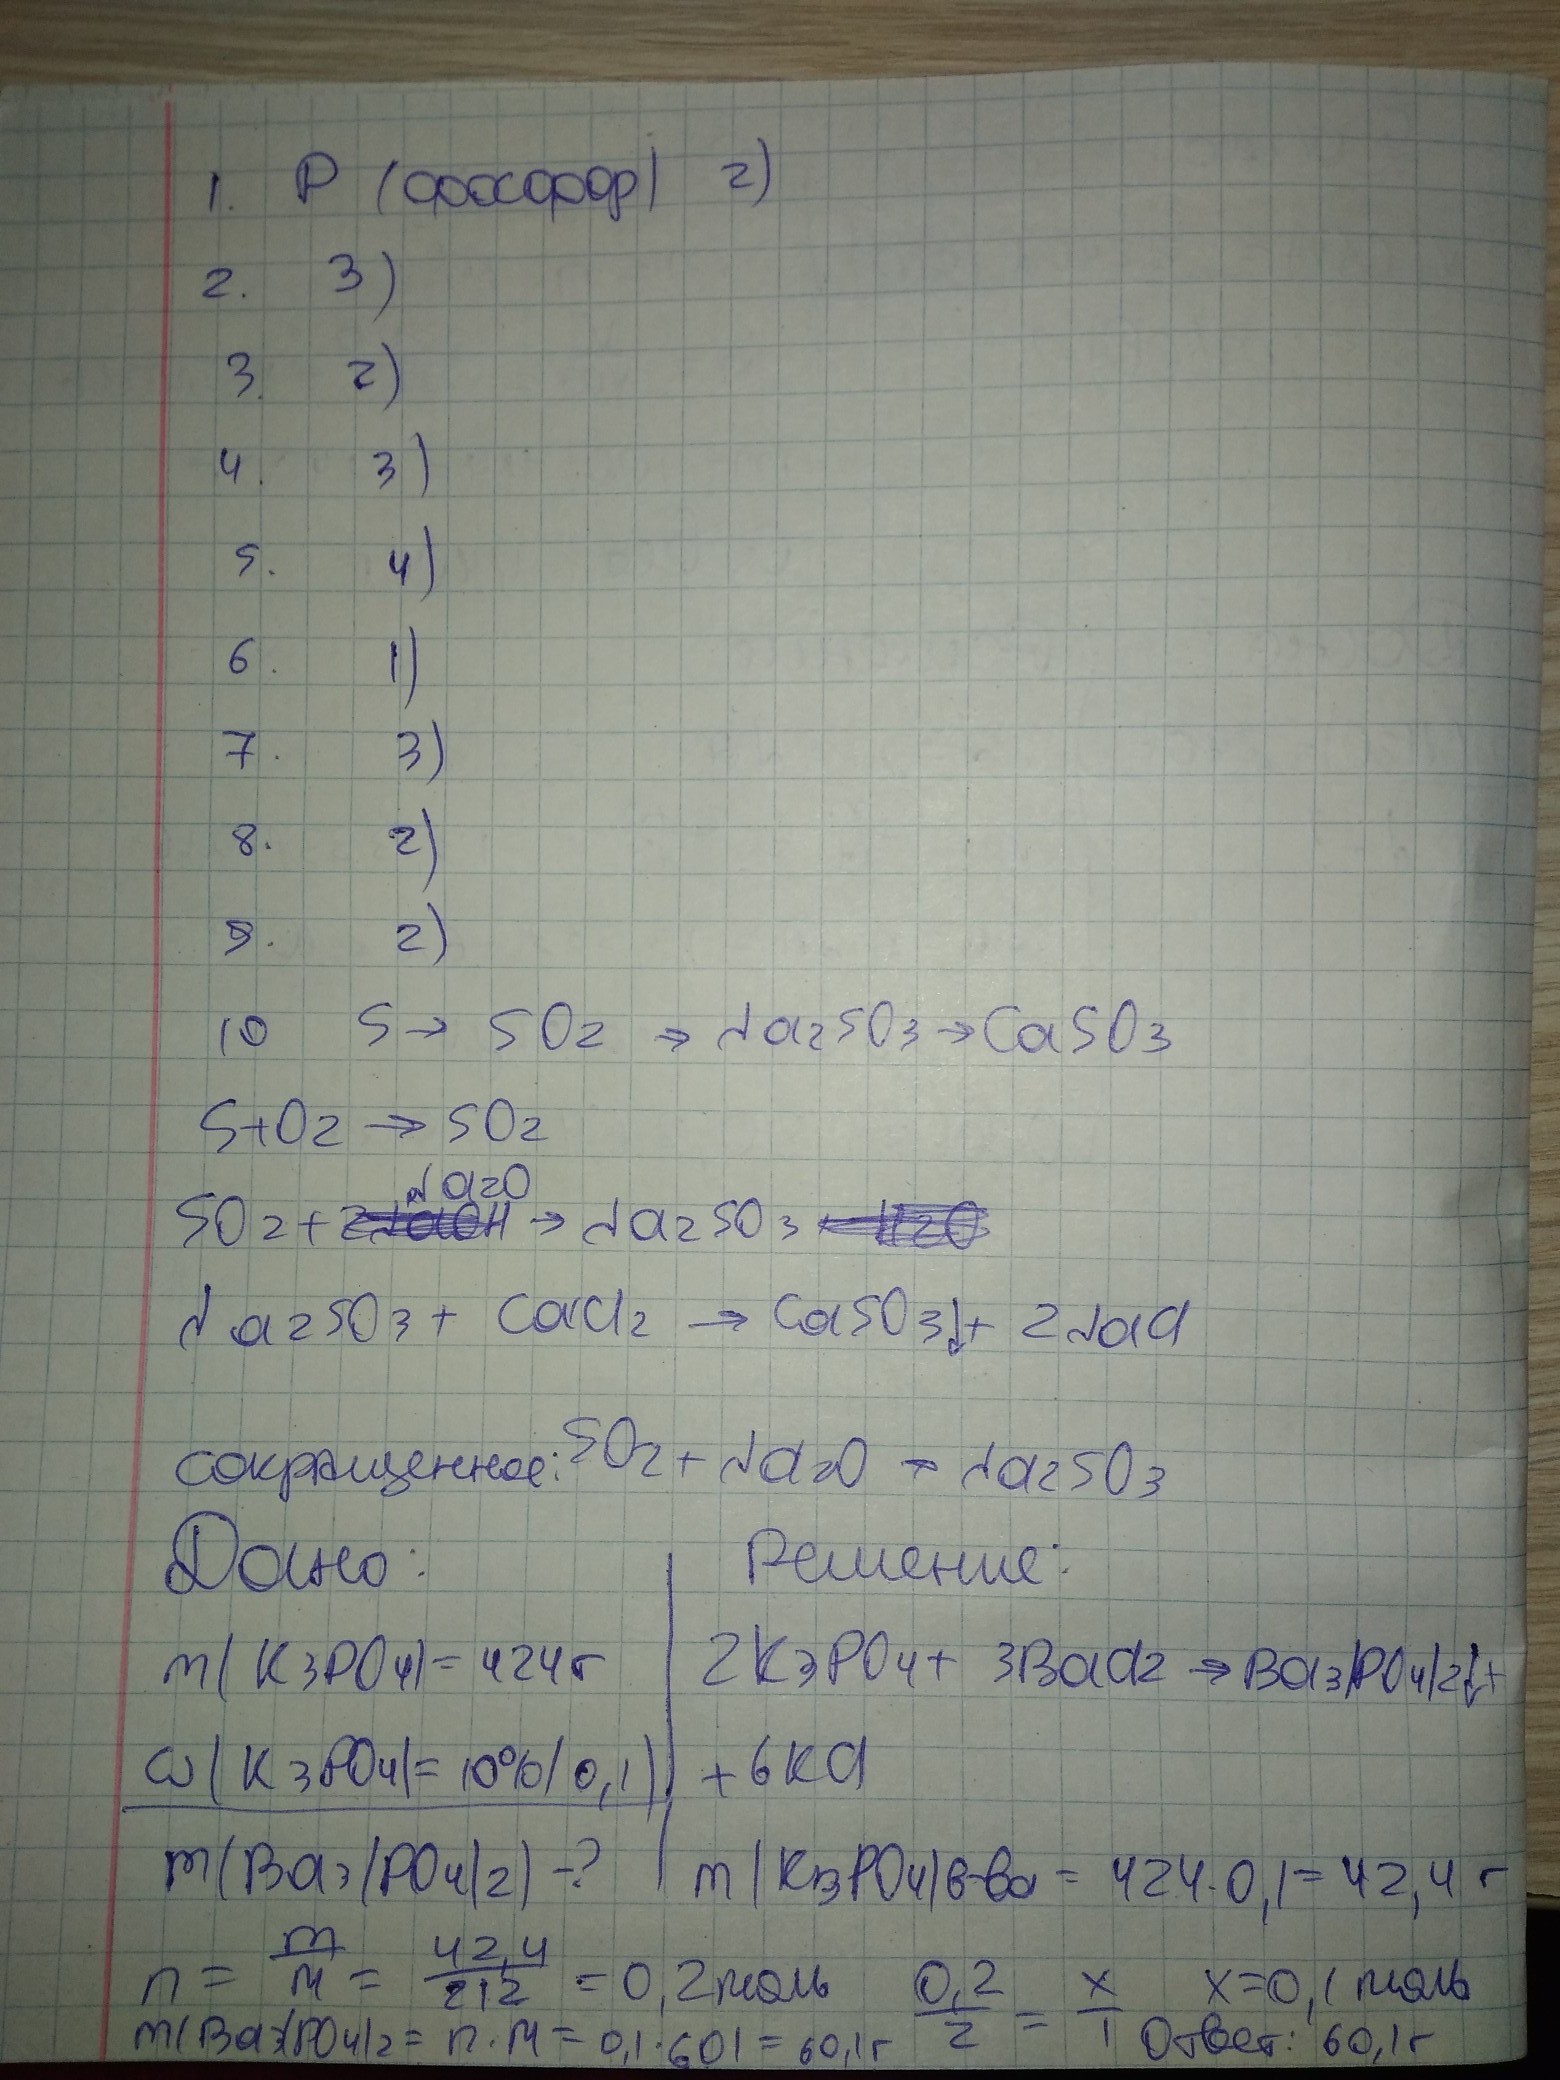 1. P (фосфор) 2)
2. 3)
3. 2)
4. 3)
5. 4)
6. 1)
7. 3)
8. 2)
9. 2)
10 S → SO2 → Na2SO3 → CaSO3
S+O2 → SO2
Na2O
SO2 + 2NaOH → Na2SO3 + H2O
Na2SO3 + CaCl2 → CaSO3↓ + 2NaCl
сокращенное: SO2 + Na2O → Na2SO3
Дано: Решение:
m(K3PO4) = 424г 2K3PO4 + 3BaCl2 → Ba3(PO4)2↓ +
ω(K3PO4) = 10% (0,1) + 6KCl
m(Ba3(PO4)2) - ? m(K3PO4)в-ва = 424·0,1 = 42,4 г
n = m/M = 42,4/212 = 0,2 моль 0,2/2 = x/1 x=0,1 моль
m(Ba3(PO4)2 = n·M = 0,1·601 = 60,1г Ответ: 60,1г